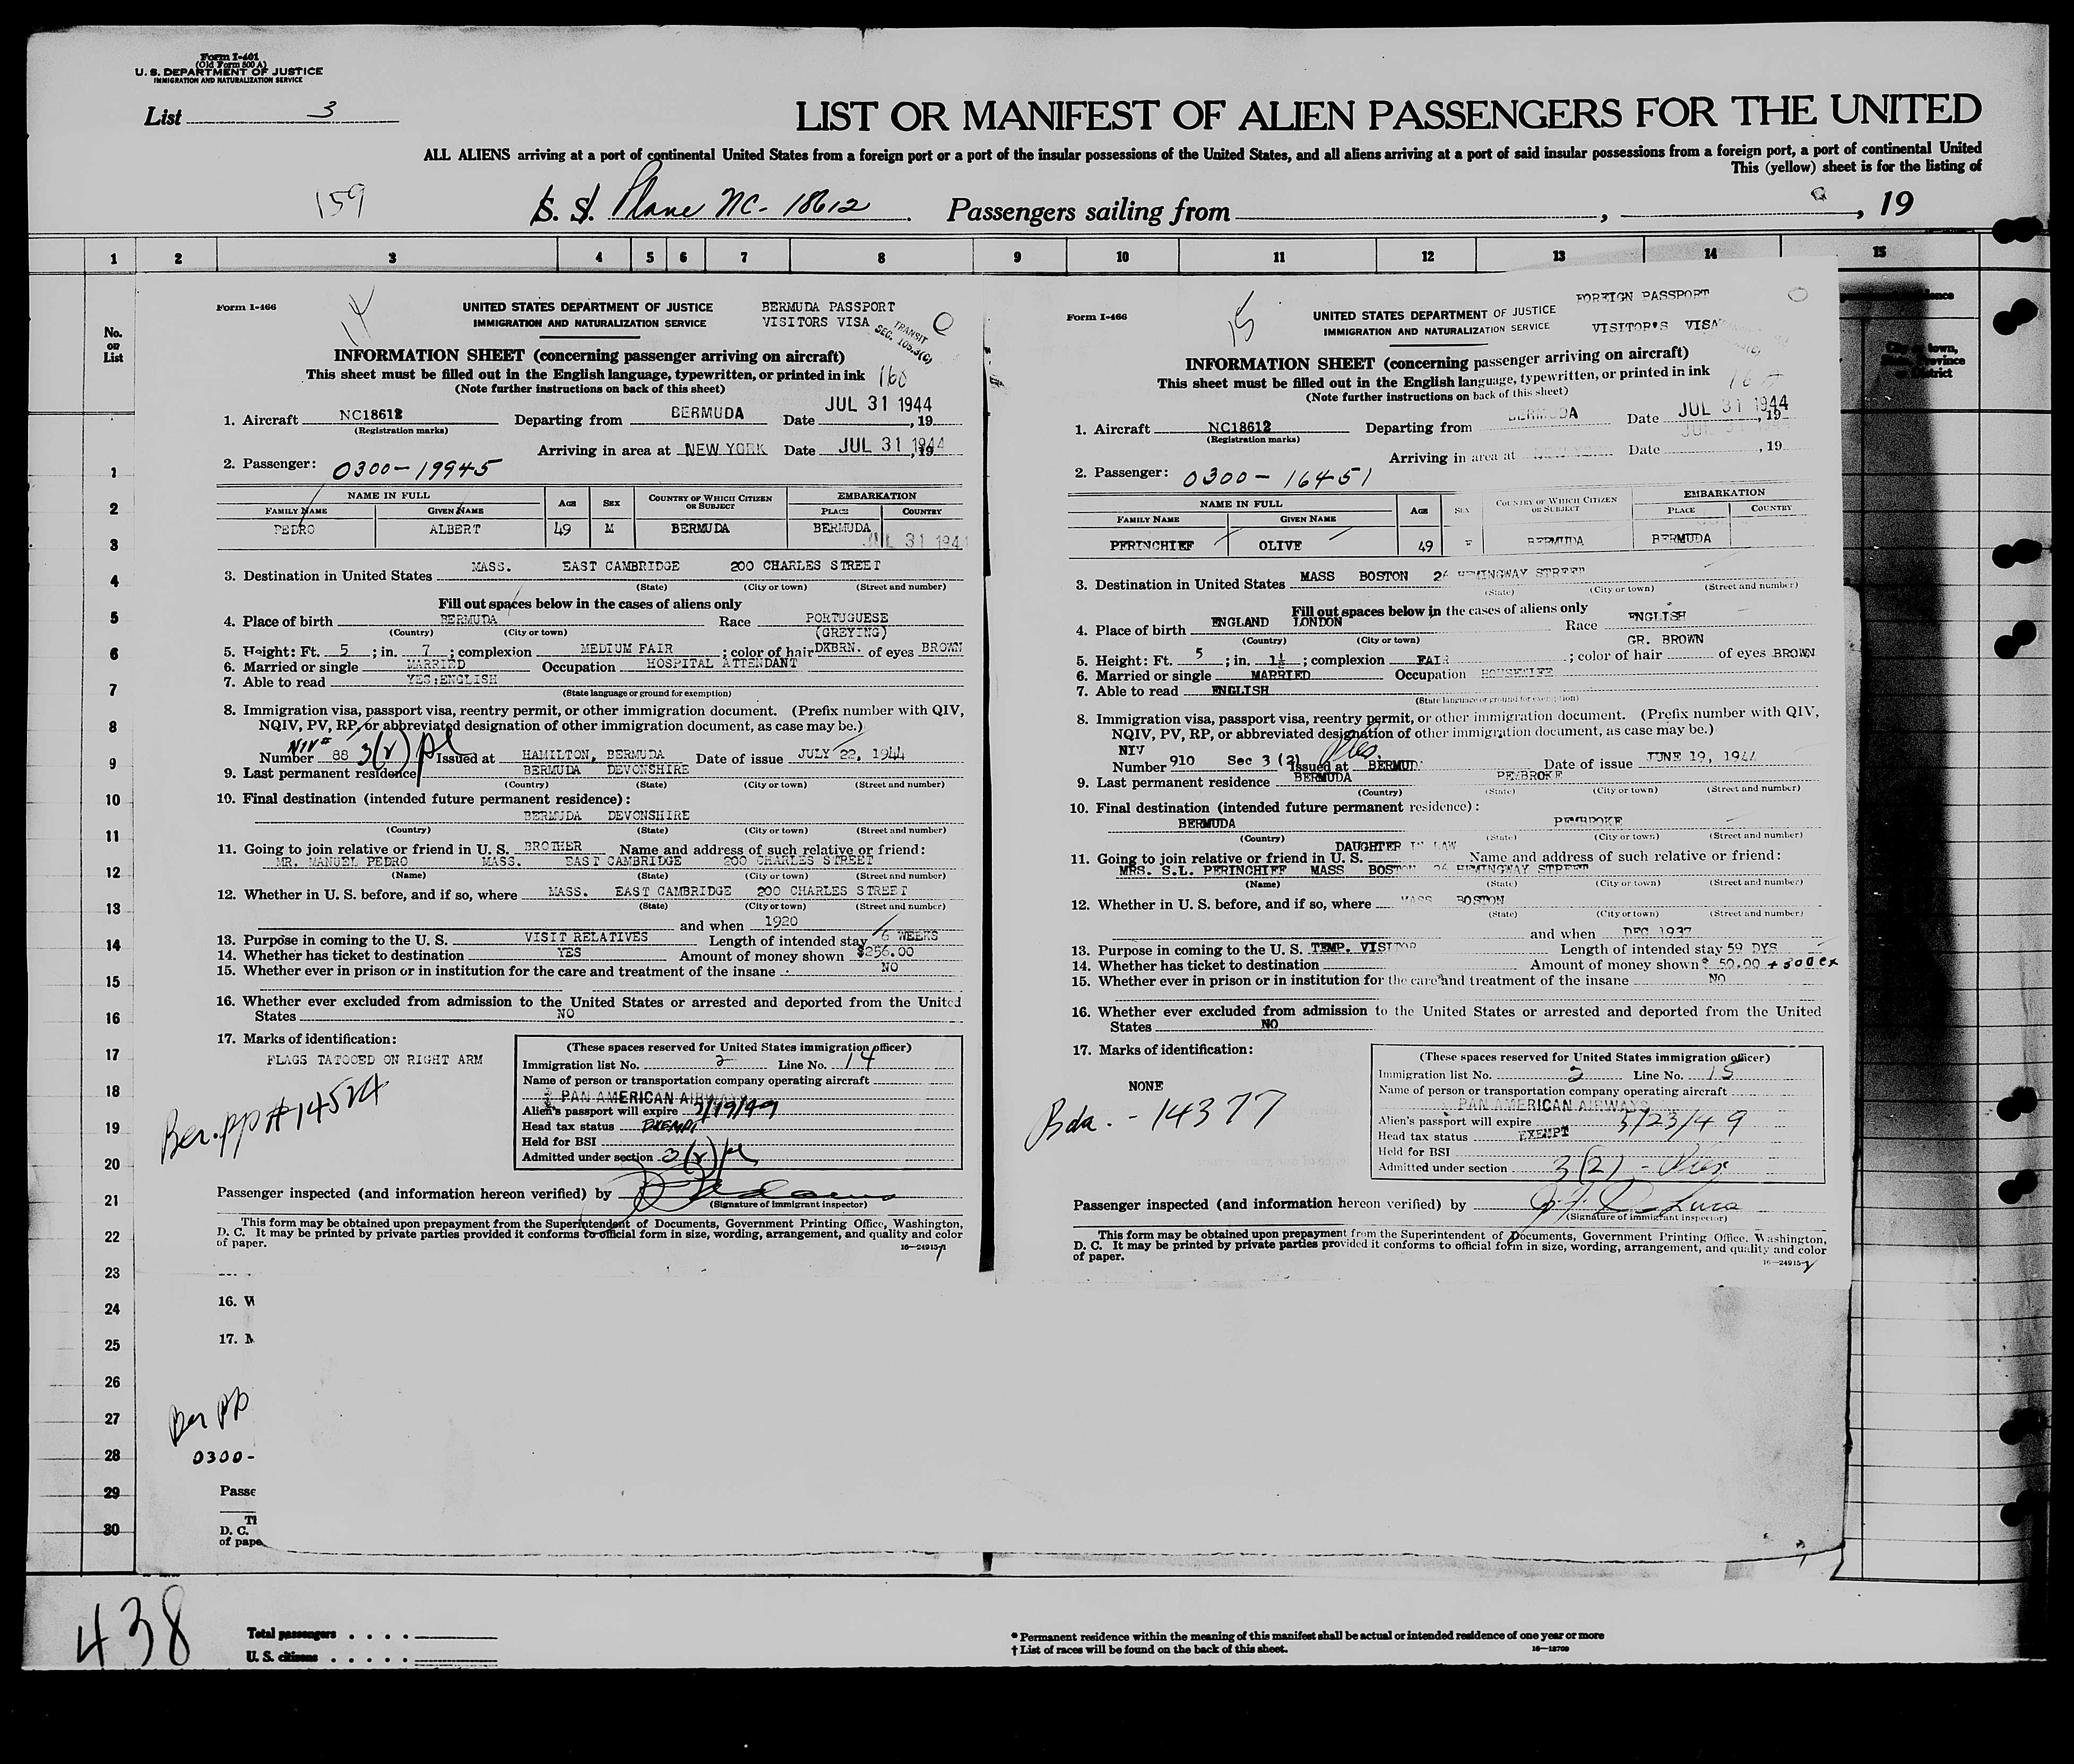 Form I-401
(Old Form 500 A)
U. S. DEPARTMENT OF JUSTICE
IMMIGRATION AND NATURALIZATION SERVICE
List 3
LIST OR MANIFEST OF ALIEN PASSENGERS FOR THE UNITED
ALL ALIENS arriving at a port of continental United States from a foreign port or a port of the insular possessions of the United States, and all aliens arriving at a port of said insular possessions from a foreign port, a port of continental United
This (yellow) sheet is for the listing of
159 S. S. Plane NC-18612 Passengers sailing from , , 19
1 2 3 4 5 6 7 8 9 10 11 12 13 14 15
No. on List
City or town,
1
2
3
4
5
6
7
8
9
10
11
12
13
14
15
16
17
18
19
20
21
22
23
24
25
26
27
28
29
30
Form I-466
14
UNITED STATES DEPARTMENT OF JUSTICE
IMMIGRATION AND NATURALIZATION SERVICE
BERMUDA PASSPORT
VISITORS VISA
TRANSIT
SEC. 105.3(C)
INFORMATION SHEET (concerning passenger arriving on aircraft)
This sheet must be filled out in the English language, typewritten, or printed in ink
160
(Note further instructions on back of this sheet)
1. Aircraft NC18612 Departing from BERMUDA Date JUL 31 1944, 19
(Registration marks)
Arriving in area at NEW YORK Date JUL 31 1944, 19
2. Passenger: 0300-19945
NAME IN FULL AGE SEX COUNTRY OF WHICH CITIZEN OR SUBJECT EMBARKATION
FAMILY NAME GIVEN NAME PLACE COUNTRY
PEDRO ALBERT 49 M BERMUDA BERMUDA
JUL 31 1944
3. Destination in United States MASS. EAST CAMBRIDGE 200 CHARLES STREET
(State) (City or town) (Street and number)
Fill out spaces below in the cases of aliens only
4. Place of birth BERMUDA Race PORTUGUESE
(Country) (City or town) (GREYING)
5. Height: Ft. 5 ; in. 7 ; complexion MEDIUM FAIR ; color of hair DKBRN. of eyes BROWN
6. Married or single MARRIED Occupation HOSPITAL ATTENDANT
7. Able to read YES:ENGLISH
(State language or ground for exemption)
8. Immigration visa, passport visa, reentry permit, or other immigration document. (Prefix number with QIV,
NQIV, PV, RP, or abbreviated designation of other immigration document, as case may be.)
NIV#
Number 88 3(2) Issued at HAMILTON, BERMUDA Date of issue JULY 22, 1944
9. Last permanent residence BERMUDA DEVONSHIRE
(Country) (State) (City or town) (Street and number)
10. Final destination (intended future permanent residence):
BERMUDA DEVONSHIRE
(Country) (State) (City or town) (Street and number)
11. Going to join relative or friend in U. S. BROTHER Name and address of such relative or friend:
MR. MANUEL PEDRO MASS. EAST CAMBRIDGE 200 CHARLES STREET
(Name) (State) (City or town) (Street and number)
12. Whether in U. S. before, and if so, where MASS. EAST CAMBRIDGE 200 CHARLES STREET
(State) (City or town) (Street and number)
and when 1920
13. Purpose in coming to the U. S. VISIT RELATIVES Length of intended stay 6 WEEKS
14. Whether has ticket to destination YES Amount of money shown $256.00
15. Whether ever in prison or in institution for the care and treatment of the insane NO
16. Whether ever excluded from admission to the United States or arrested and deported from the United
States NO
17. Marks of identification:
FLAGS TATOOED ON RIGHT ARM
Ber. pp #14524
(These spaces reserved for United States immigration officer)
Immigration list No. 2 Line No. 14
Name of person or transportation company operating aircraft
PAN AMERICAN AIRWAYS
Alien's passport will expire 2/19/49
Head tax status EXEMPT
Held for BSI
Admitted under section 3(2)
Passenger inspected (and information hereon verified) by
(Signature of immigrant inspector)
This form may be obtained upon prepayment from the Superintendent of Documents, Government Printing Office, Washington,
D. C. It may be printed by private parties provided it conforms to official form in size, wording, arrangement, and quality and color
of paper.
16—24915-1
Form I-466
15
UNITED STATES DEPARTMENT OF JUSTICE
IMMIGRATION AND NATURALIZATION SERVICE
FOREIGN PASSPORT
VISITOR'S VISA
INFORMATION SHEET (concerning passenger arriving on aircraft)
This sheet must be filled out in the English language, typewritten, or printed in ink
(Note further instructions on back of this sheet)
1. Aircraft NC18612 Departing from BERMUDA Date JUL 31 1944, 19
(Registration marks)
Arriving in area at NEW YORK Date , 19
2. Passenger: 0300-16451
NAME IN FULL AGE SEX COUNTRY OF WHICH CITIZEN OR SUBJECT EMBARKATION
FAMILY NAME GIVEN NAME PLACE COUNTRY
PERINCHIEF OLIVE 49 F BERMUDA BERMUDA
3. Destination in United States MASS BOSTON 26 HEMINGWAY STREET
(State) (City or town) (Street and number)
Fill out spaces below in the cases of aliens only
4. Place of birth ENGLAND LONDON Race ENGLISH
(Country) (City or town) GR. BROWN
5. Height: Ft. 5 ; in. 1½ ; complexion FAIR ; color of hair of eyes BROWN
6. Married or single MARRIED Occupation HOUSEWIFE
7. Able to read ENGLISH
(State language or ground for exemption)
8. Immigration visa, passport visa, reentry permit, or other immigration document. (Prefix number with QIV,
NQIV, PV, RP, or abbreviated designation of other immigration document, as case may be.)
NIV
Number 910 Sec 3 (2) Issued at BERMUDA Date of issue JUNE 19, 1944
9. Last permanent residence BERMUDA PEMBROKE
(Country) (State) (City or town) (Street and number)
10. Final destination (intended future permanent residence):
BERMUDA PEMBROKE
(Country) (State) (City or town) (Street and number)
DAUGHTER IN LAW
11. Going to join relative or friend in U. S. Name and address of such relative or friend:
MRS. S.L. PERINCHIFF MASS BOSTON 26 HEMINGWAY STREET
(Name) (State) (City or town) (Street and number)
12. Whether in U. S. before, and if so, where MASS BOSTON
(State) (City or town) (Street and number)
and when DEC 1937
13. Purpose in coming to the U. S. TEMP. VISITOR Length of intended stay 59 DYS
14. Whether has ticket to destination Amount of money shown $ 50.00 + 300
15. Whether ever in prison or in institution for the care and treatment of the insane NO
16. Whether ever excluded from admission to the United States or arrested and deported from the United
States NO
17. Marks of identification:
NONE
Bda. - 14377
(These spaces reserved for United States immigration officer)
Immigration list No. 2 Line No. 15
Name of person or transportation company operating aircraft
PAN AMERICAN AIRWAYS
Alien's passport will expire 5/23/49
Head tax status EXEMPT
Held for BSI
Admitted under section 3(2)
Passenger inspected (and information hereon verified) by
(Signature of immigrant inspector)
This form may be obtained upon prepayment from the Superintendent of Documents, Government Printing Office, Washington,
D. C. It may be printed by private parties provided it conforms to official form in size, wording, arrangement, and quality and color
of paper.
16—24915-1
16. W
17. M
Ber pp
0300-
Passe
Th
D. C.
of pape
438
Total passengers
U. S. citizens
* Permanent residence within the meaning of this manifest shall be actual or intended residence of one year or more
† List of races will be found on the back of this sheet.
16—18709